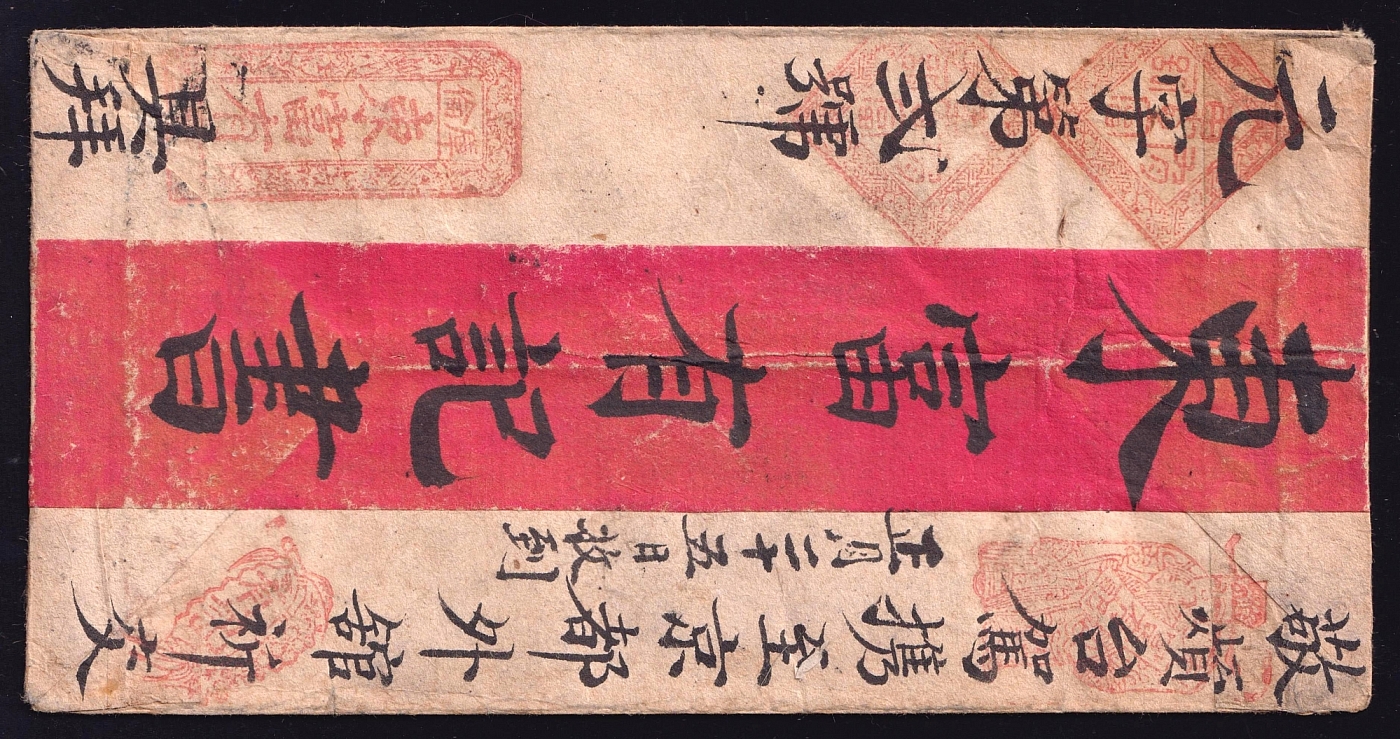 敬煩台駕攜至京都外館祈交
正月二十五日收到
東富有記書
元字第弍號
庫倫
東富有
具拜